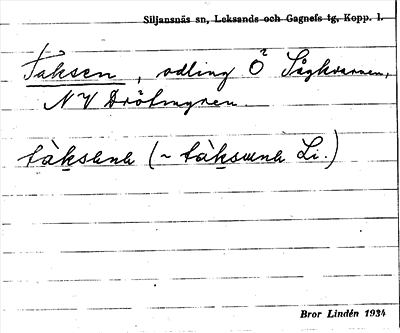 Siljansnäs sn, Leksands och Gagnefs tg, Kopp. l.
Täksen, odling Ö Sågkvarnen,
NV Drötmyren.
tàksɛnɛ (~ tàksɯnɛ Li.)
Bror Lindén 1934